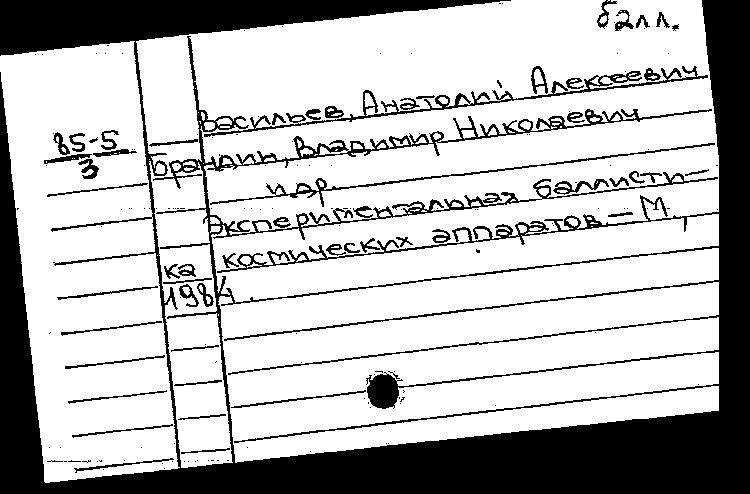 балл.
Васильев, Анатолий Алексеевич
85-5
3
Брандин, Владимир Николаевич
и др.
Экспериментальная баллисти-
ка космических аппаратов. – М.,
1984.